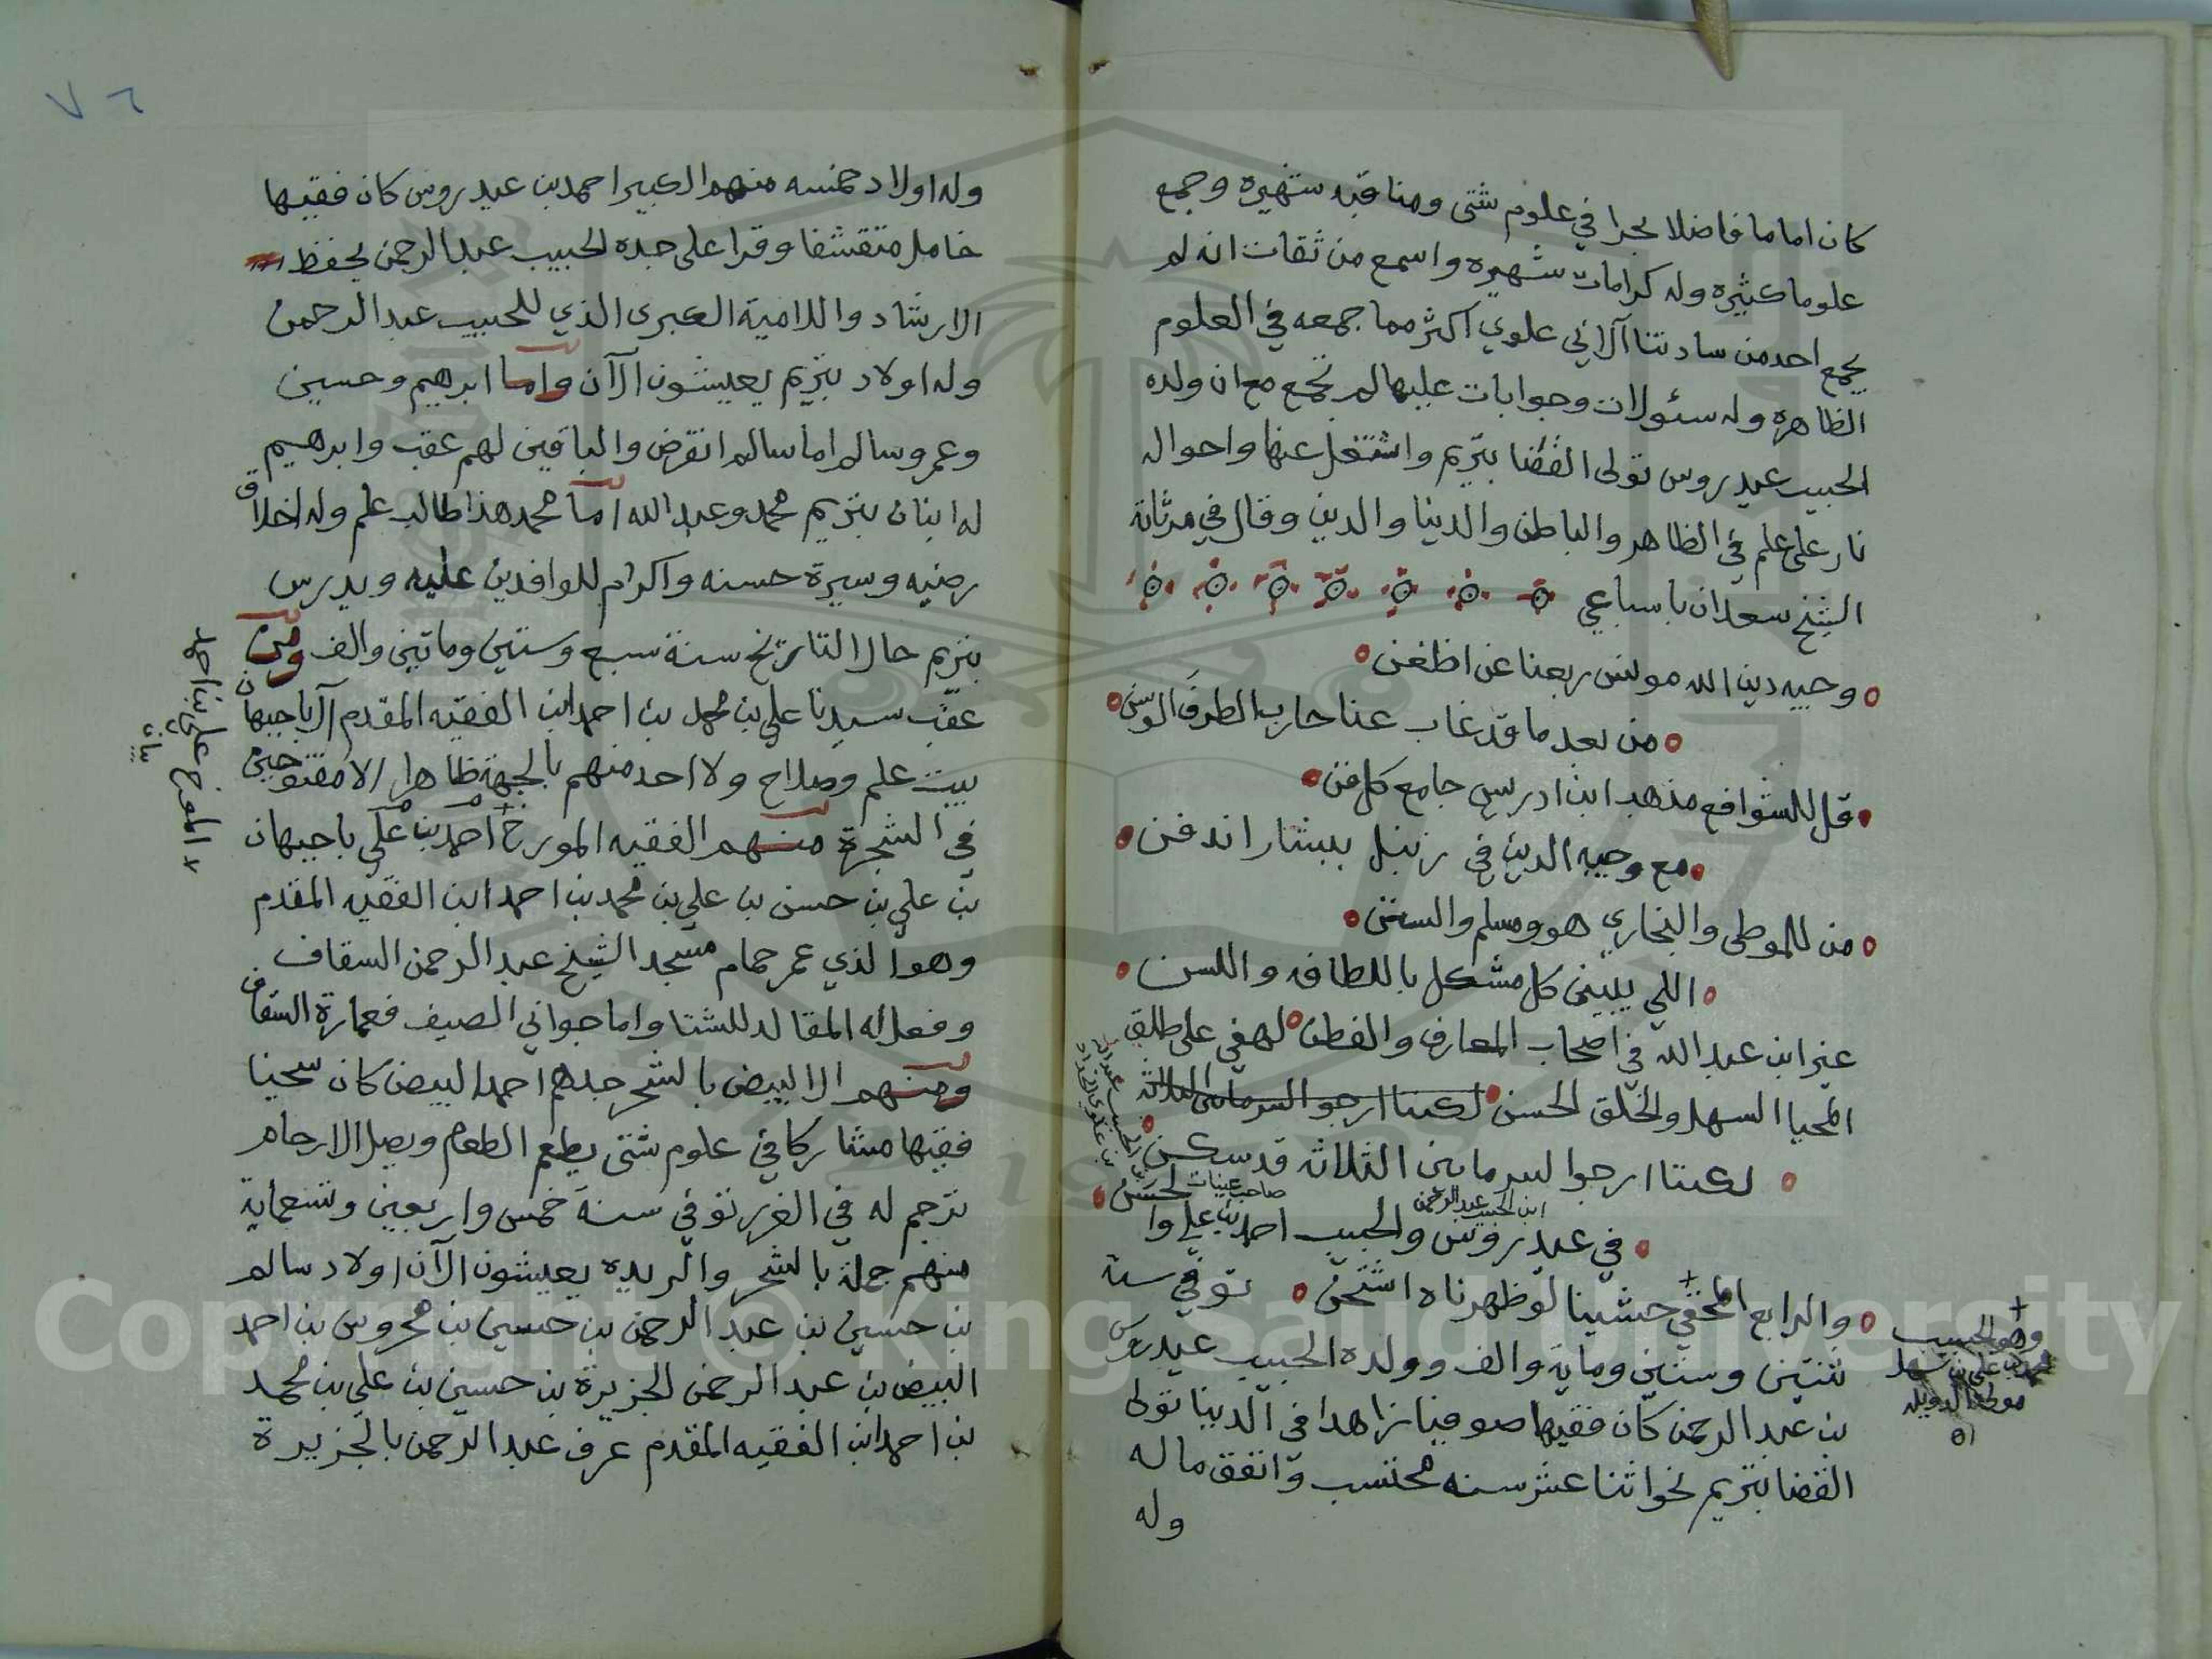 كان اماما فاضلا بحرا في علوم شتى ومناقبه شهيره وجمع
علوما كثيره وله كرامات شهيره واسمع من ثقات انه لم
يجمع احد من سادتنا آل ابي علوي اكثر مما جمعه في العلوم
الظاهره وله سئولات وجوابات عليها لم تجمع مع ان ولده
الحبيب عيدروس تولى القضا بتريم واشتغل عنها واحواله
نار على علم في الظاهر والباطن والدنيا والدين وقال في مرثاته
الشيخ سعدان باسباعي
وجيه دين الله مونس ربعنا عن اظغن
من بعد ما قد غاب عنا حارب الطرف الوسن
قل للشوافع مذهب ابن ادريس جامع كل فن
مع وجيه الدين في زنبل ببشار اندفن
من للموطى والبخاري هو ومسلم والسنن
اللي يبين كل مشكل باللطافه واللسن
عنر ابن عبد الله في اصحاب المعارف والفطن لهفي على طلق
المحيا السهل والخلق الحسن لكننا ارجو السر ما بين الثلاثه
لكننا ارجوا لسر ما بين الثلاثه قد سكن
ابن الحبيب عبد الرحمن
صاحب عينات
في عيدروس والحبيب احمد بن علي وا لحسن
والرابع المخفي خشينا لو ظهرناه اشتحن توفي سنة
ثنتين وستين وماية والف وولده الحبيب عيدروس
بن عبد الرحمن كان فقيها صوفيا زاهدا في الدنيا تولى
القضا بتريم نحو اثنا عشر سنه محتسب وانفق ماله
وله
وهو الحبيب
محمد بن علي بن سهل
مولى الدويله
اه
٧٦
وله اولاد خمسه منهم الكبير احمد بن عيدروس كان فقيها
خامل متقشفا وقرا على جده الحبيب عبد الرحمن بحفظ
الارشاد واللامية الكبرى الذي للحبيب عبد الرحمن
وله اولاد بتريم يعيشون الآن واما ابرهيم وحسين
وعمر وسالم اما سالم انقرض والباقين لهم عقب وابرهيم
له ابنان بتريم محمد وعبد الله اما محمد هذا طالب علم وله اخلاق
رضيه وسيرة حسنه واكرام للوافدين عليه ويدرس
بتريم حال التاريخ سنة سبع وستين وماتين والف ومن
عقب سيدنا علي بن محمد بن احمد ابن الفقيه المقدم آل باجبهان
بيت علم وصلاح ولا احد منهم بالجهة ظاهر الا مفتوحين
في الشجرة منهم الفقيه المورخ احمد بن علي باجبهان
بن علي بن حسن بن علي بن محمد بن احمد ابن الفقيه المقدم
وهو الذي عمر حمام مسجد الشيخ عبد الرحمن السقاف
وفعل له المقالد للشتا واما جواني الصيف فعمارة السقاف
ومنهم ال البيض بالشحر جدهم احمد البيض كان سخيا
فقيها مشاركا في علوم شتى يطعم الطعام ويصل الارحام
ترجم له في الغرر توفي سنة خمس واربعين وتسعماية
منهم جملة بالشحر والريده يعيشون الآن اولاد سالم
بن حسين بن عبد الرحمن بن حسين بن محروس بن احمد
البيض بن عبد الرحمن الجزيرة بن حسين بن علي بن محمد
بن احمد ابن الفقيه المقدم عرف عبد الرحمن بالجزيرة
المورخ علي بن احمد
بيان
Copyright © King Saud University